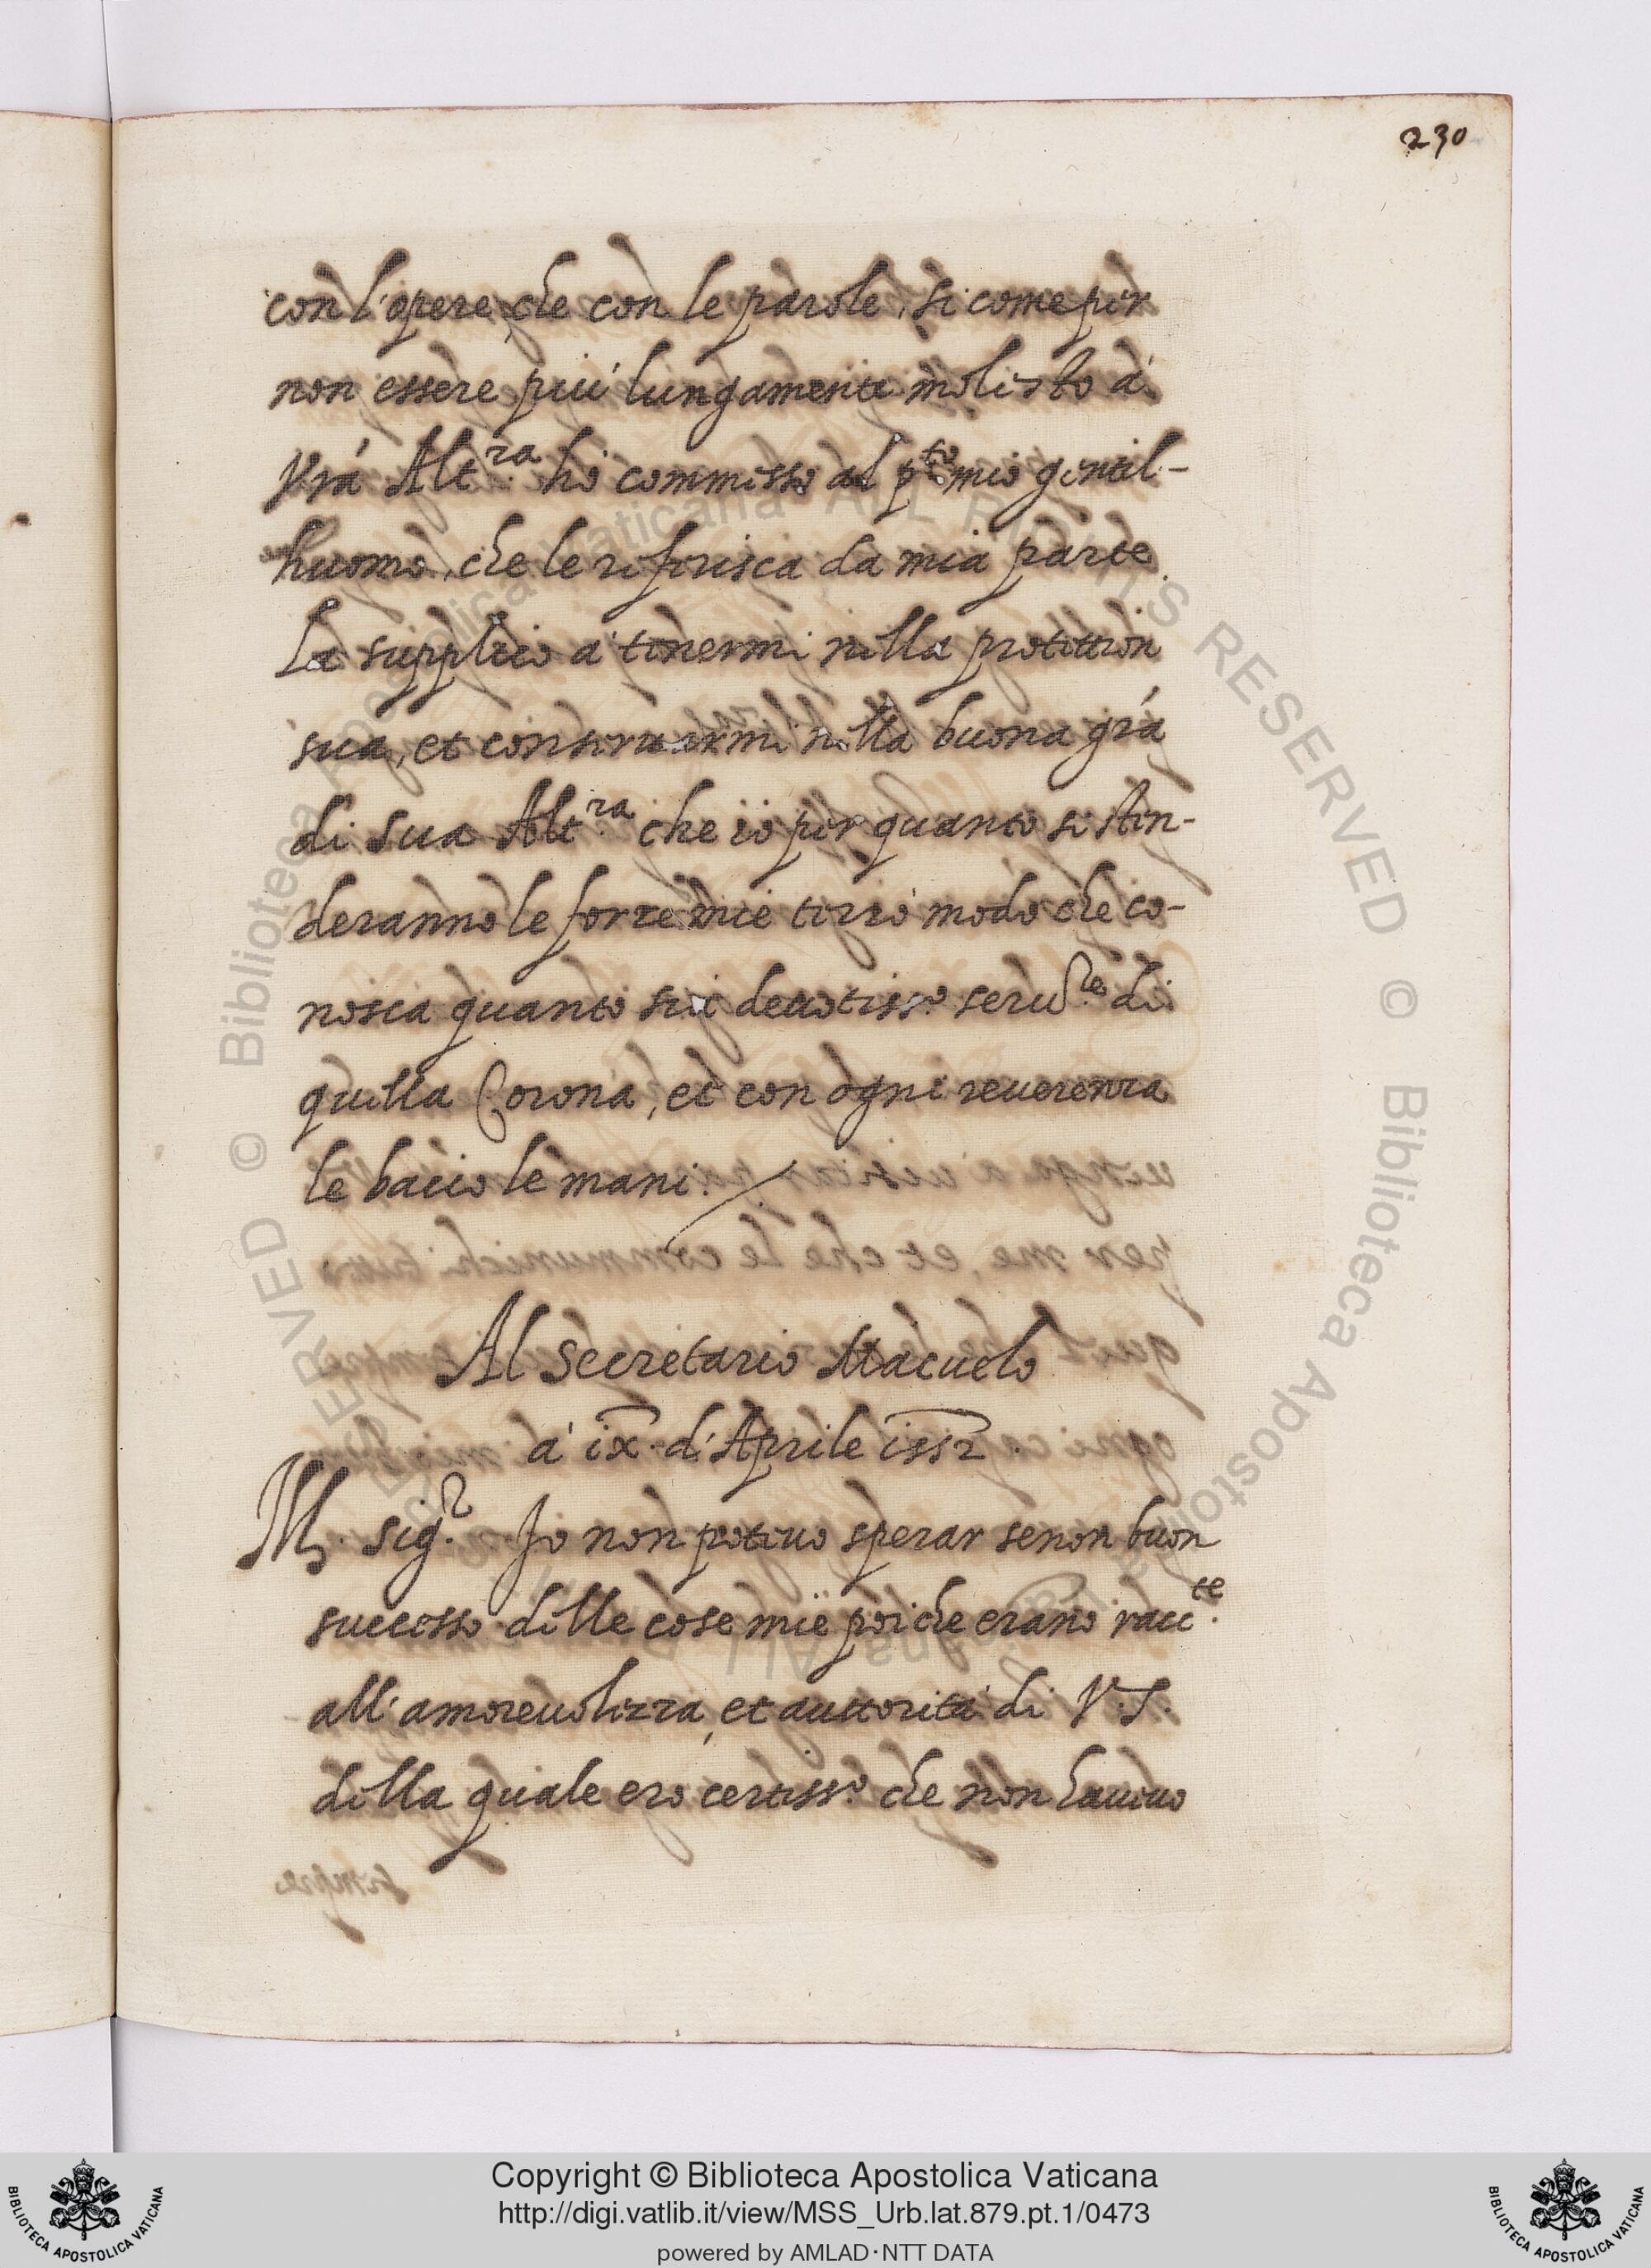 230
con l'opere, che con le parole, si come per
non essere più lungamente molesto à
Vrá Alt.ra ho commesso al p.to mio gentil-
huomo, che le riferisca da mia parte.
La supplico a' tenermi nella protettion
sua, et conseruarmi nella buona grá
di sua Alt.ra che io per quanto si sten-
deranno le forze mie terrò modo che co-
nosca quanto sia deuotiss.o seru.re di
quella Corona, et con ogni reuerenza
le bacio le mani.
Al Secretario Macuelo
à ix. di Aprile 1552.
M. Sig.r Io non poteuo sperar senon buon
successo delle cose mie poiche erano racc.te
all'amoreuolezza, et auttorità di V. S.
della quale ero certiss.o che non haueuo
Copyright © Biblioteca Apostolica Vaticana
http://digi.vatlib.it/view/MSS_Urb.lat.879.pt.1/0473
powered by AMLAD·NTT DATA